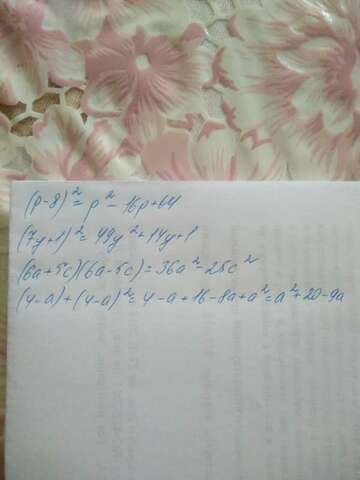 (p-8)²=p²-16p+64
(7y+1)²=49y²+14y+1
(6a+5c)(6a-5c)=36a²-25c²
(4-a)+(4-a)²=4-a+16-8a+a²=a²+20-9a